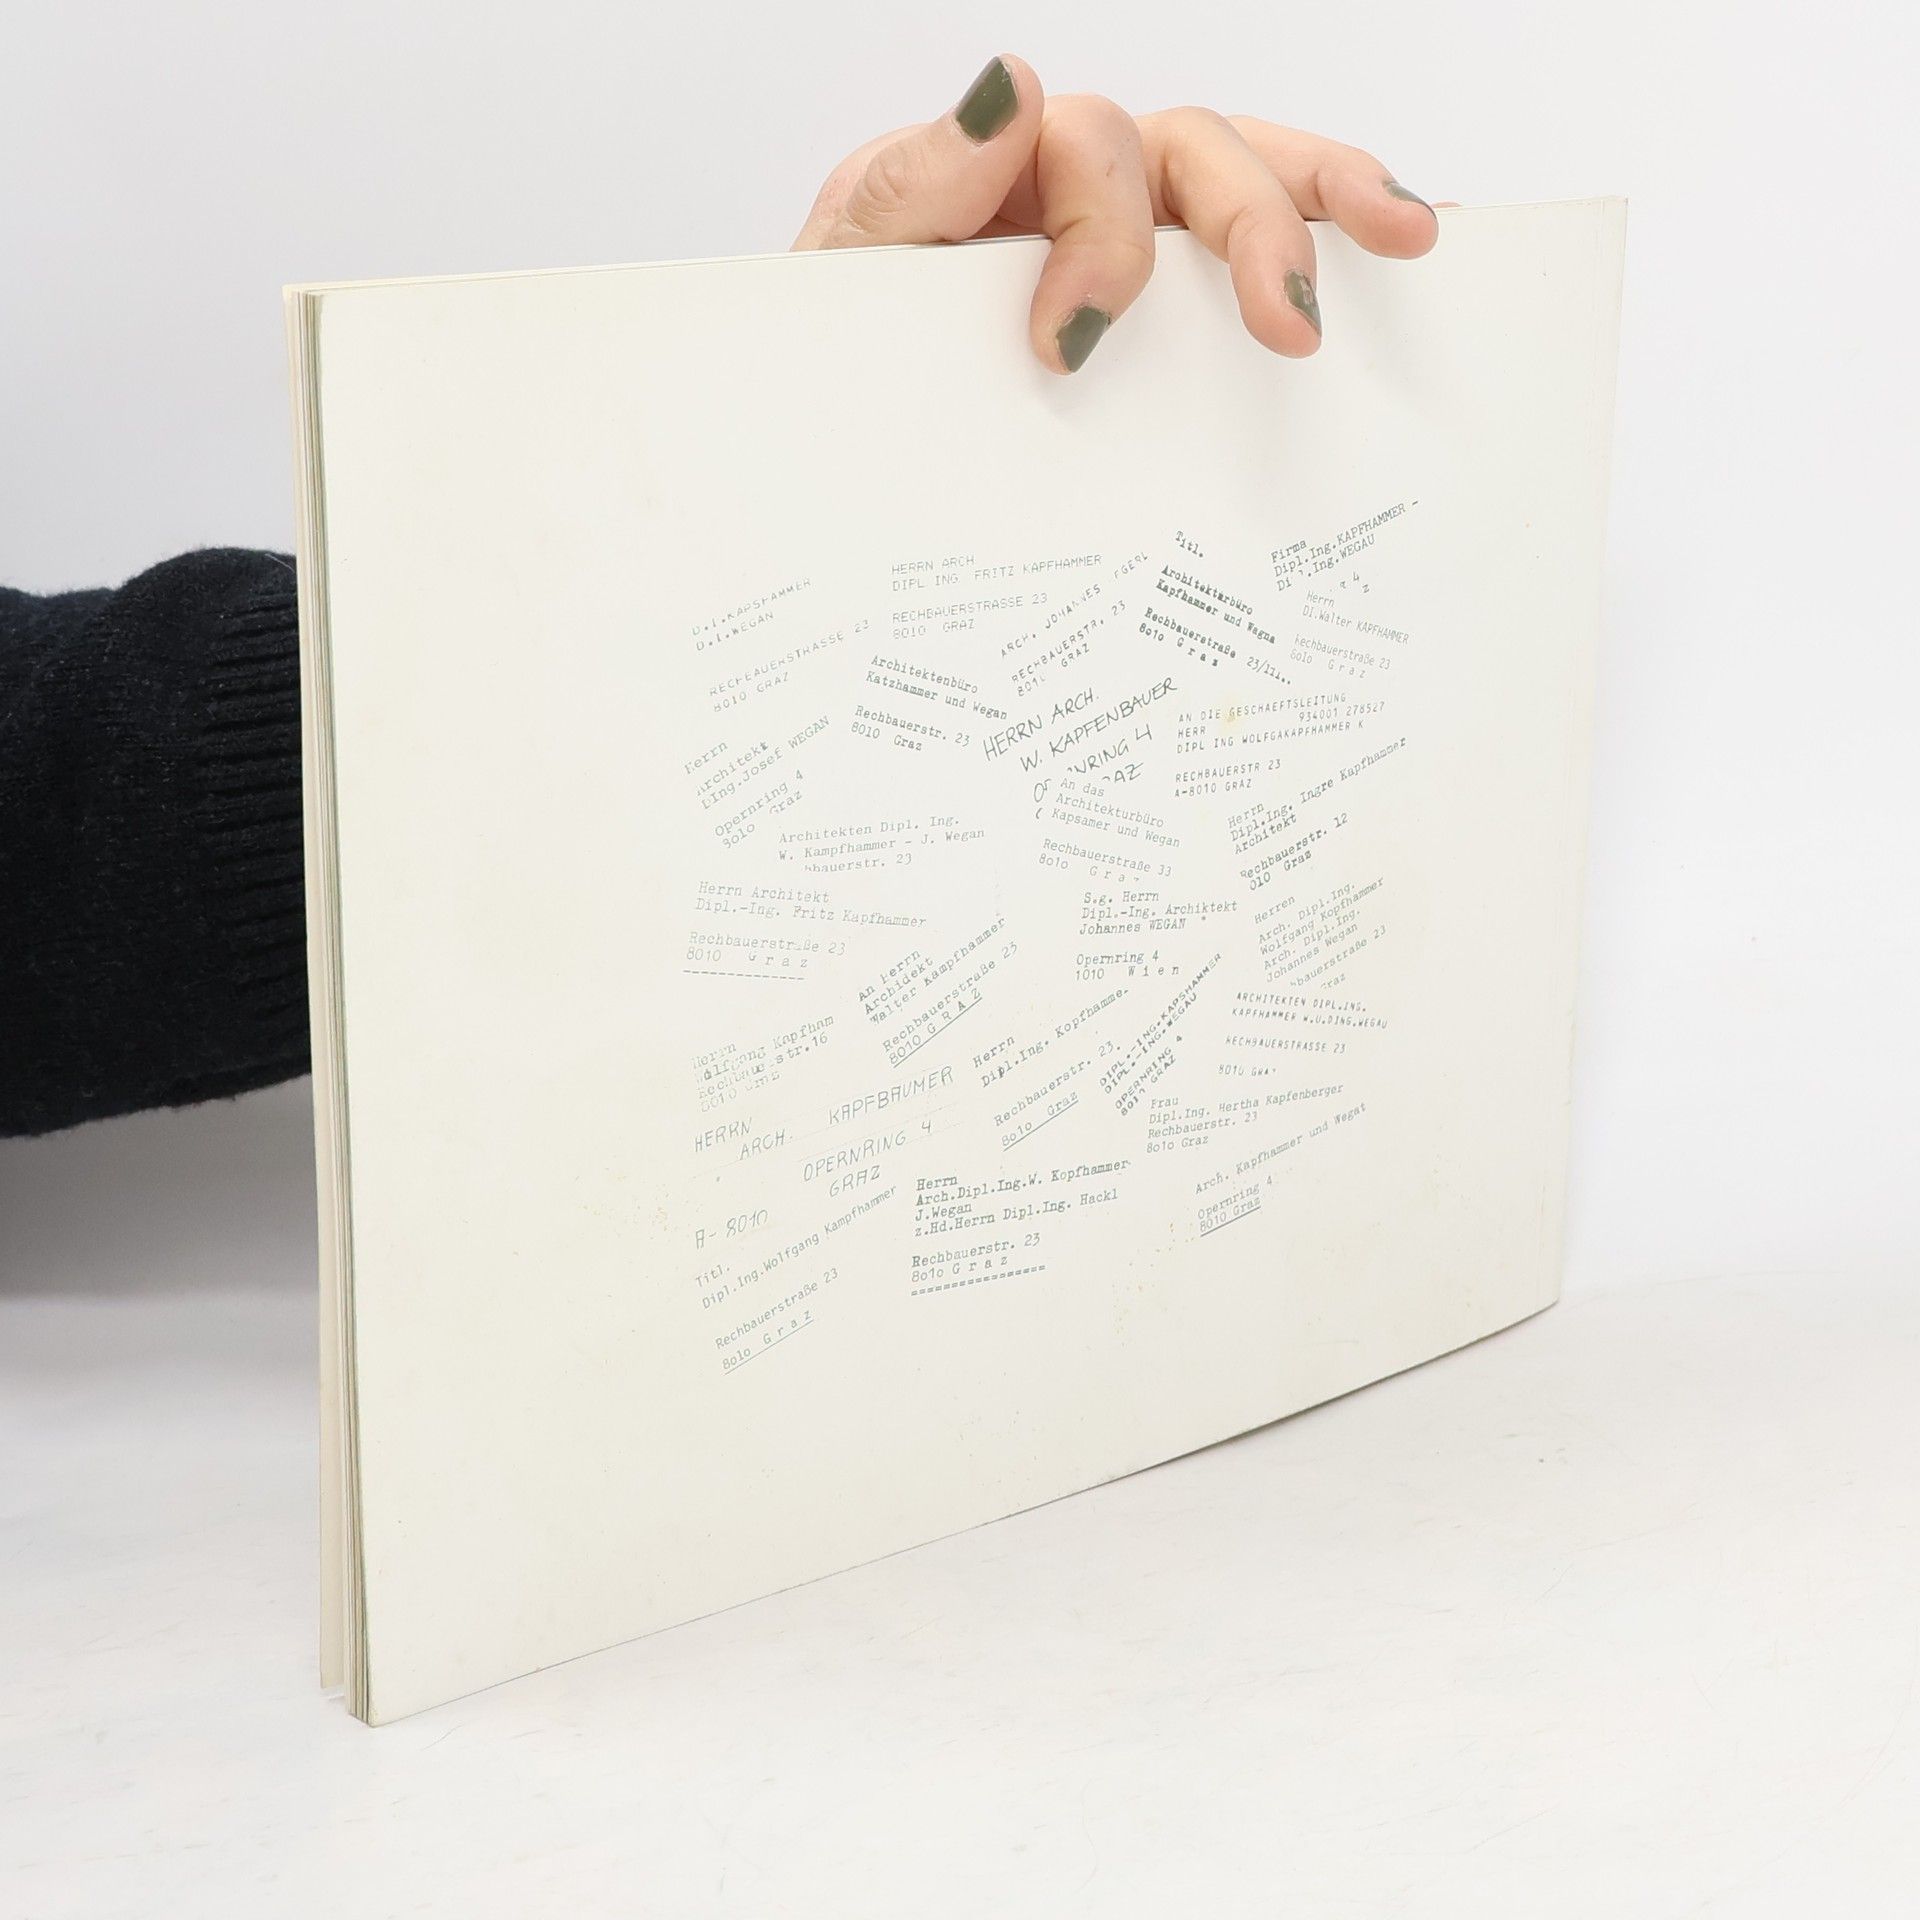 D.I.KAPSHAMMER
D.I.WEGAN
RECHBAUERSTRASSE 23
8010 GRAZ
HERRN ARCH
DIPL ING FRITZ KAPFHAMMER
RECHBAUERSTRASSE 23
8010 GRAZ
ARCH. JOHANNES
RECHBAUERSTR. 23
GRAZ
Titl.
Architekturbüro
Kapfhammer und Wagna
Rechbauerstraße 23/111..
8010 G r a z
Firma
Dipl.Ing.KAPFHAMMER -
Ing.WEGAU
Herrn
DI.Walter KAPFHAMMER
Rechbauerstraße 23
8o1o G r a z
Architektenbüro
Katzhammer und Wegan
Rechbauerstr. 23
8010 Graz
HERRN ARCH.
W. KAPFENBAUER
4
AN DIE GESCHAEFTSLEITUNG
934001 278527
HERR
DIPL ING WOLFGAKAPFHAMMER K
RECHBAUERSTR 23
A-8010 GRAZ
Herrn
Architekt
DIng.Josef WEGAN
Opernring 4
Graz
An das
Architekturbüro
Kapsamer und Wegan
Rechbauerstraße 33
8o1o G r a z
Herrn
Dipl.Ing. Ingre Kapfhammer
Architekt
Rechbauerstr. 12
Graz
Architekten Dipl. Ing.
W. Kampfhammer - J. Wegan
23
Herrn Architekt
Dipl.-Ing. Fritz Kapfhammer
Rechbauerstraße 23
8010 G r a z
S.g. Herrn
Dipl.-Ing. Archiktekt
Johannes WEGAN
Opernring 4
1010 W i e n
Herren
Arch. Dipl.Ing.
Wolfgang Kopfhammer
Arch. Dipl.Ing.
Johannes Wegan
23
Graz
An Herrn
Archidekt
Walter Kampfhammer
Rechbauerstraße 23
8010 G R A Z
Herrn
Wolfgang Kapfham
16
Herrn
Dipl.Ing. Kopfhamme
Rechbauerstr. 23.
8o1o Graz
DIPL.-ING.KAPSHAMMER
DIPL.-ING.WEGAU
OPERNRING 4
GRAZ
ARCHITEKTEN DIPL.ING.
KAPFHAMMER W.U.DING.WEGAU
RECHBAUERSTRASSE 23
8010
HERRN
ARCH. KAPFBAUMER
OPERNRING 4
GRAZ
A-8010
Frau
Dipl.Ing. Hertha Kapfenberger
Rechbauerstr. 23
8o1o Graz
Arch. Kapfhammer und Wegat
Opernring 4
8010 Graz
Herrn
Arch.Dipl.Ing.W. Kopfhammer
J.Wegan
z.Hd.Herrn Dipl.Ing. Hackl
Rechbauerstr. 23
8o1o G r a z
Titl.
Dipl.Ing.Wolfgang Kampfhammer
Rechbauerstraße 23
8o1o G r a z